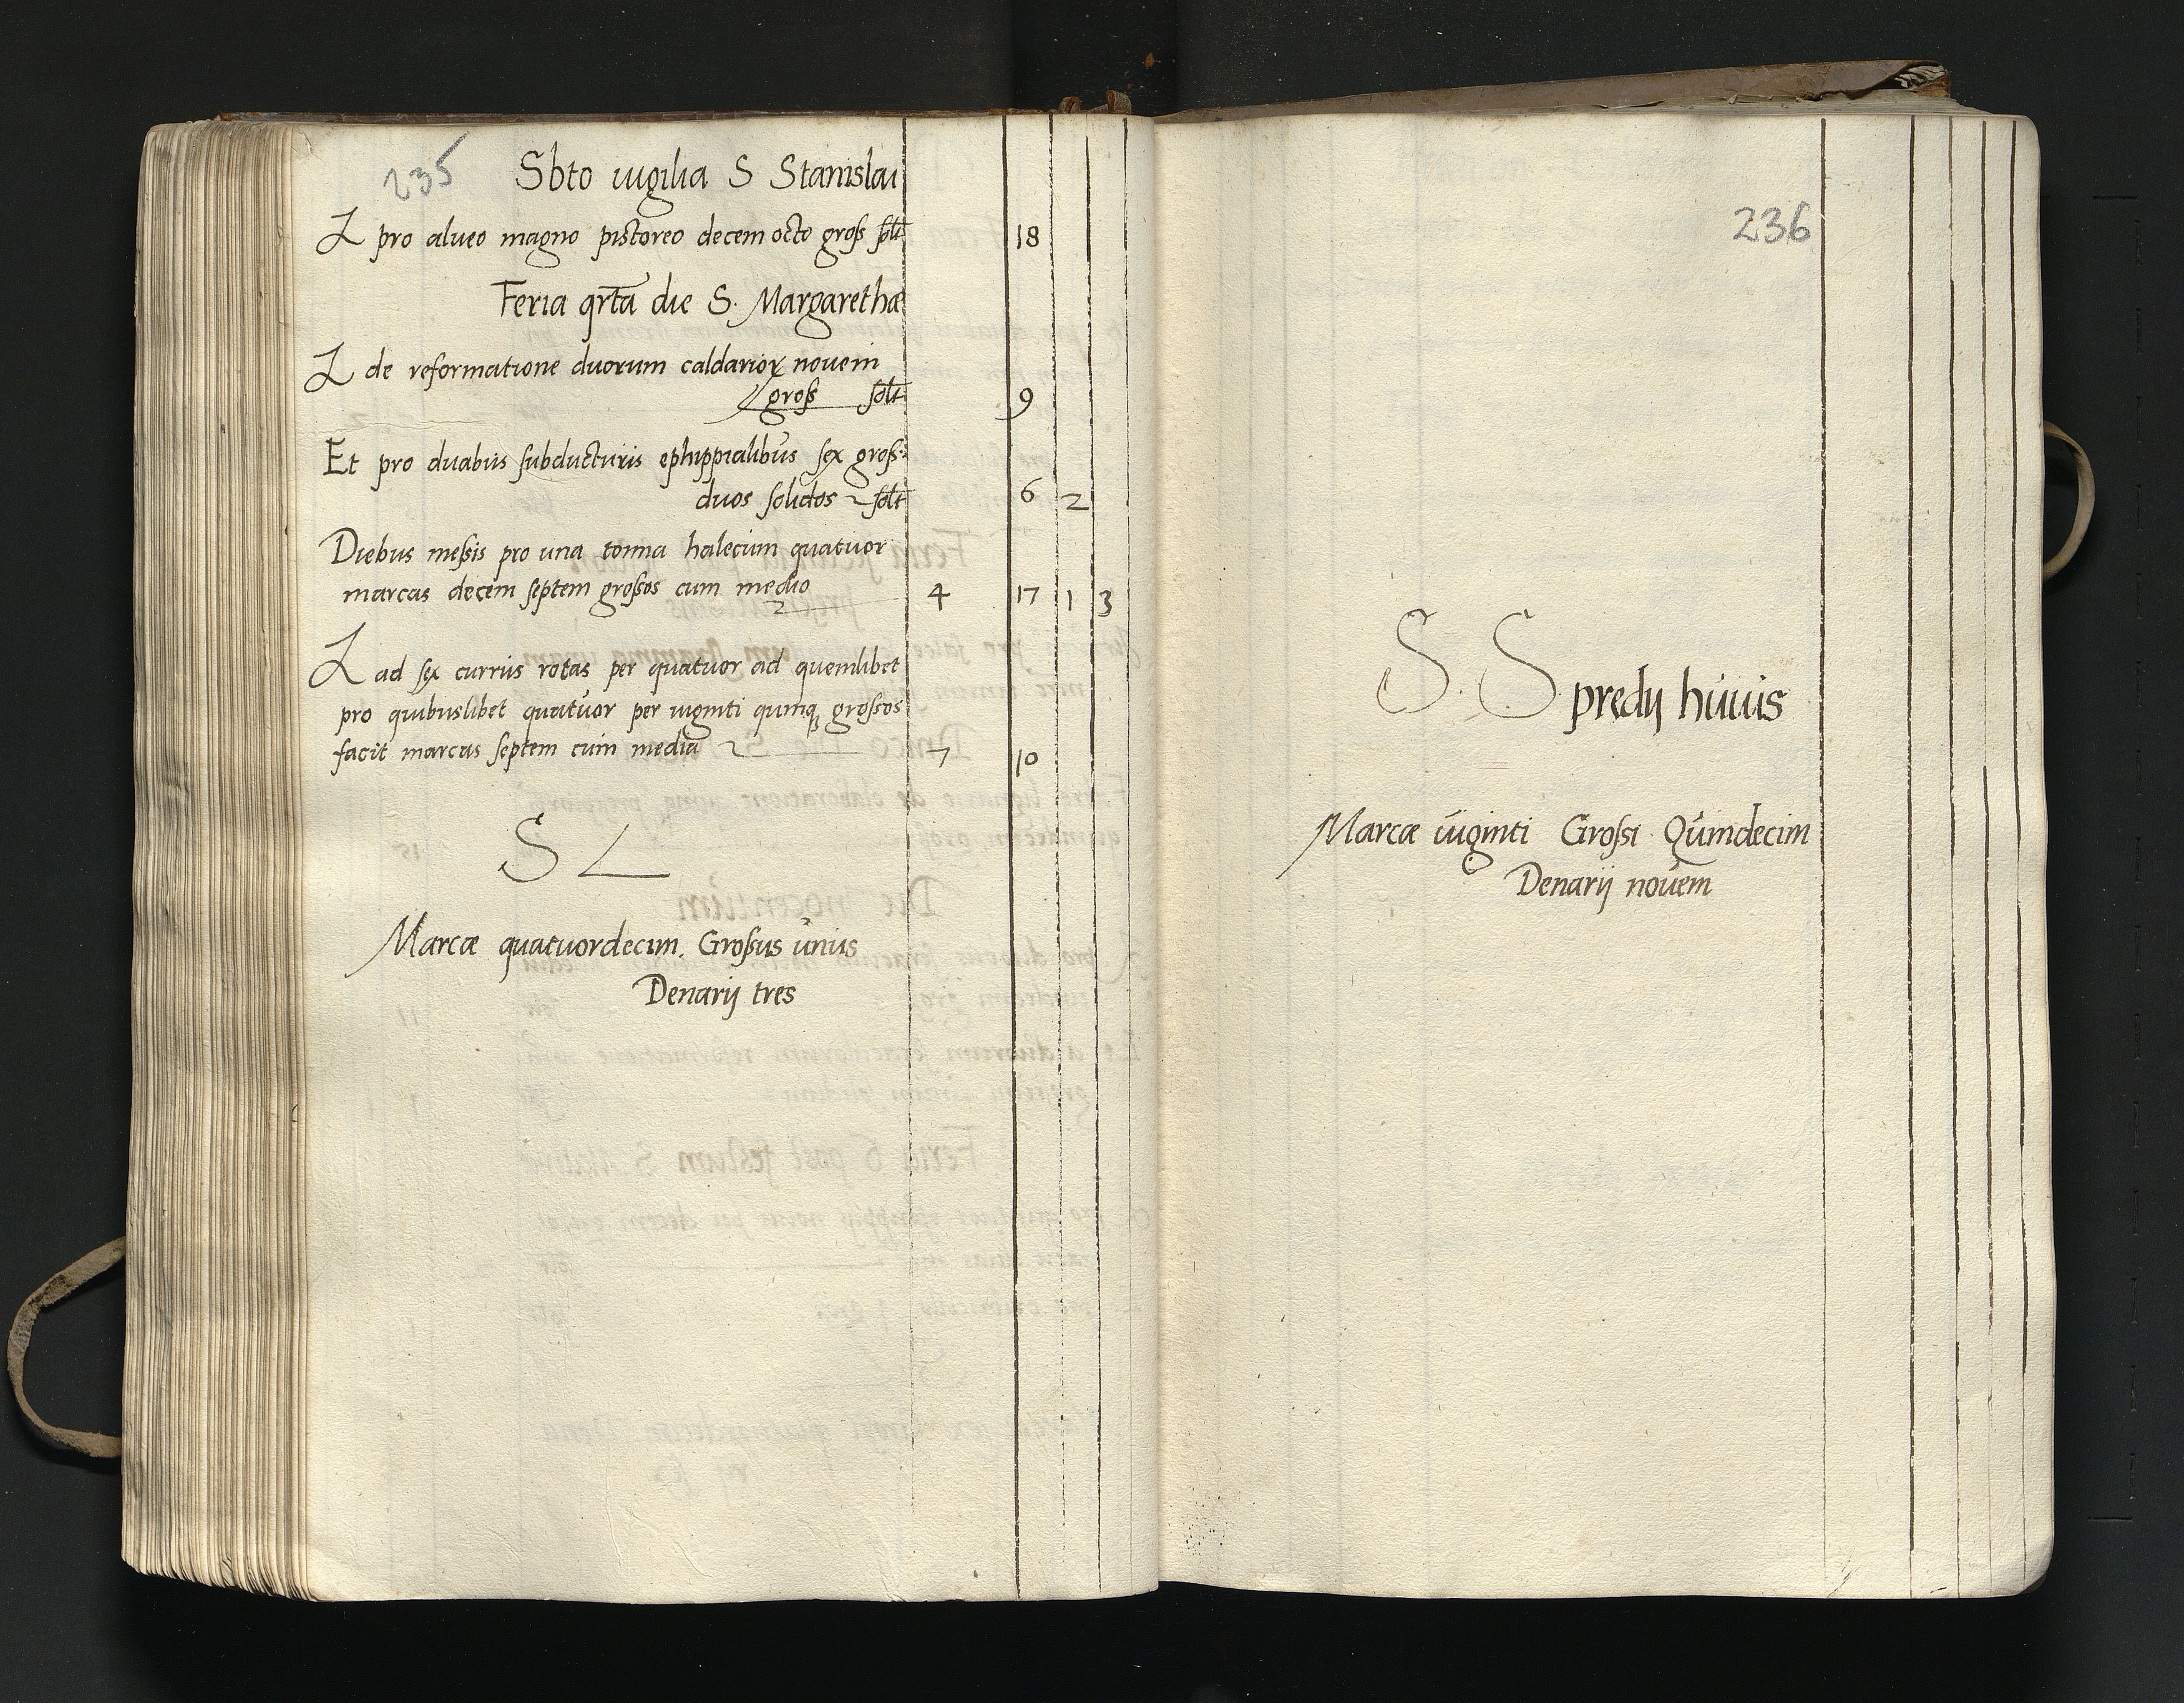 235
Sbto vigilia S Stanislai
L pro alueo magno pistoreo decem octo gross solt 18
Feria qrta die S. Margarethæ
L de reformatione duorum caldarioꝝ novem
gross solt 9
Et pro duabus subducturis ephippialibus sex gross:
duos solidos solt 6 2
Diebus messis pro una tonna halecum quatuor
marcas decem septem grossos cum medio 4 17 1 3
L ad sex currus rotas per quatuor ad quemlibet
pro quibuslibet quatuor per viginti quinqꝫ grossos
facit marcas septem cum media 7 10
S L
Marcæ quatuordecim. Grossus unus
Denarij tres
236
S. S. predij huius
Marcæ viginti Grossi Quindecim
Denarij novem